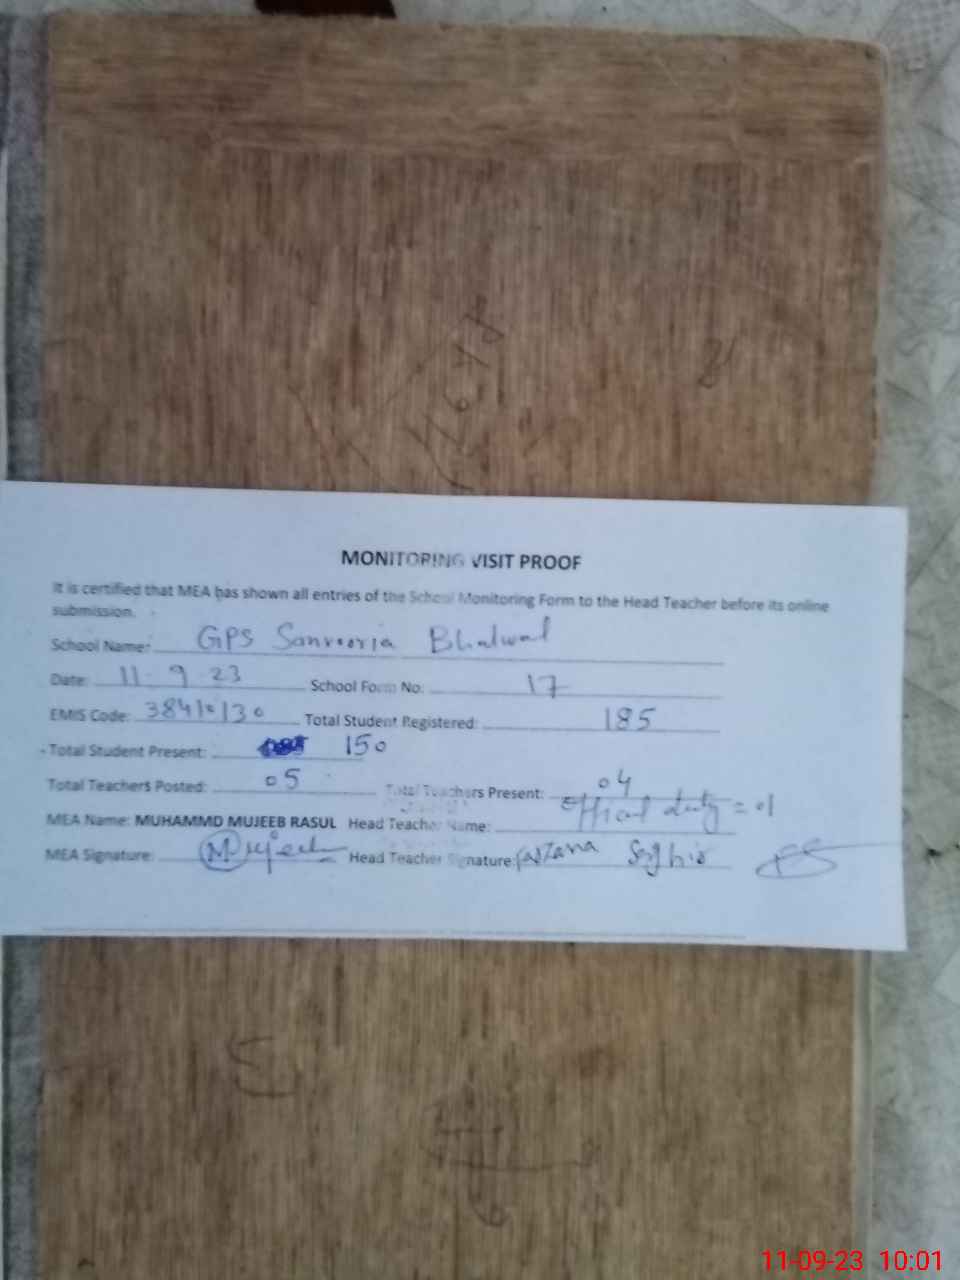 MONITORING VISIT PROOF
It is certified that MEA has shown all entries of the School Monitoring Form to the Head Teacher before its online
submission.
School Name: GPS Bhalwal
Date: 11-9-23 School Form No: 17
EMIS Code: 38410130 Total Student Registered: 185
Total Student Present: 150
Total Teachers Posted: 05 Total Teachers Present: 04
Offical duty = 01
MEA Name: MUHAMMD MUJEEB RASUL Head Teacher Name:
MEA Signature: Mujeeb Head Teacher Signature: Farzana
11-09-23 10:01